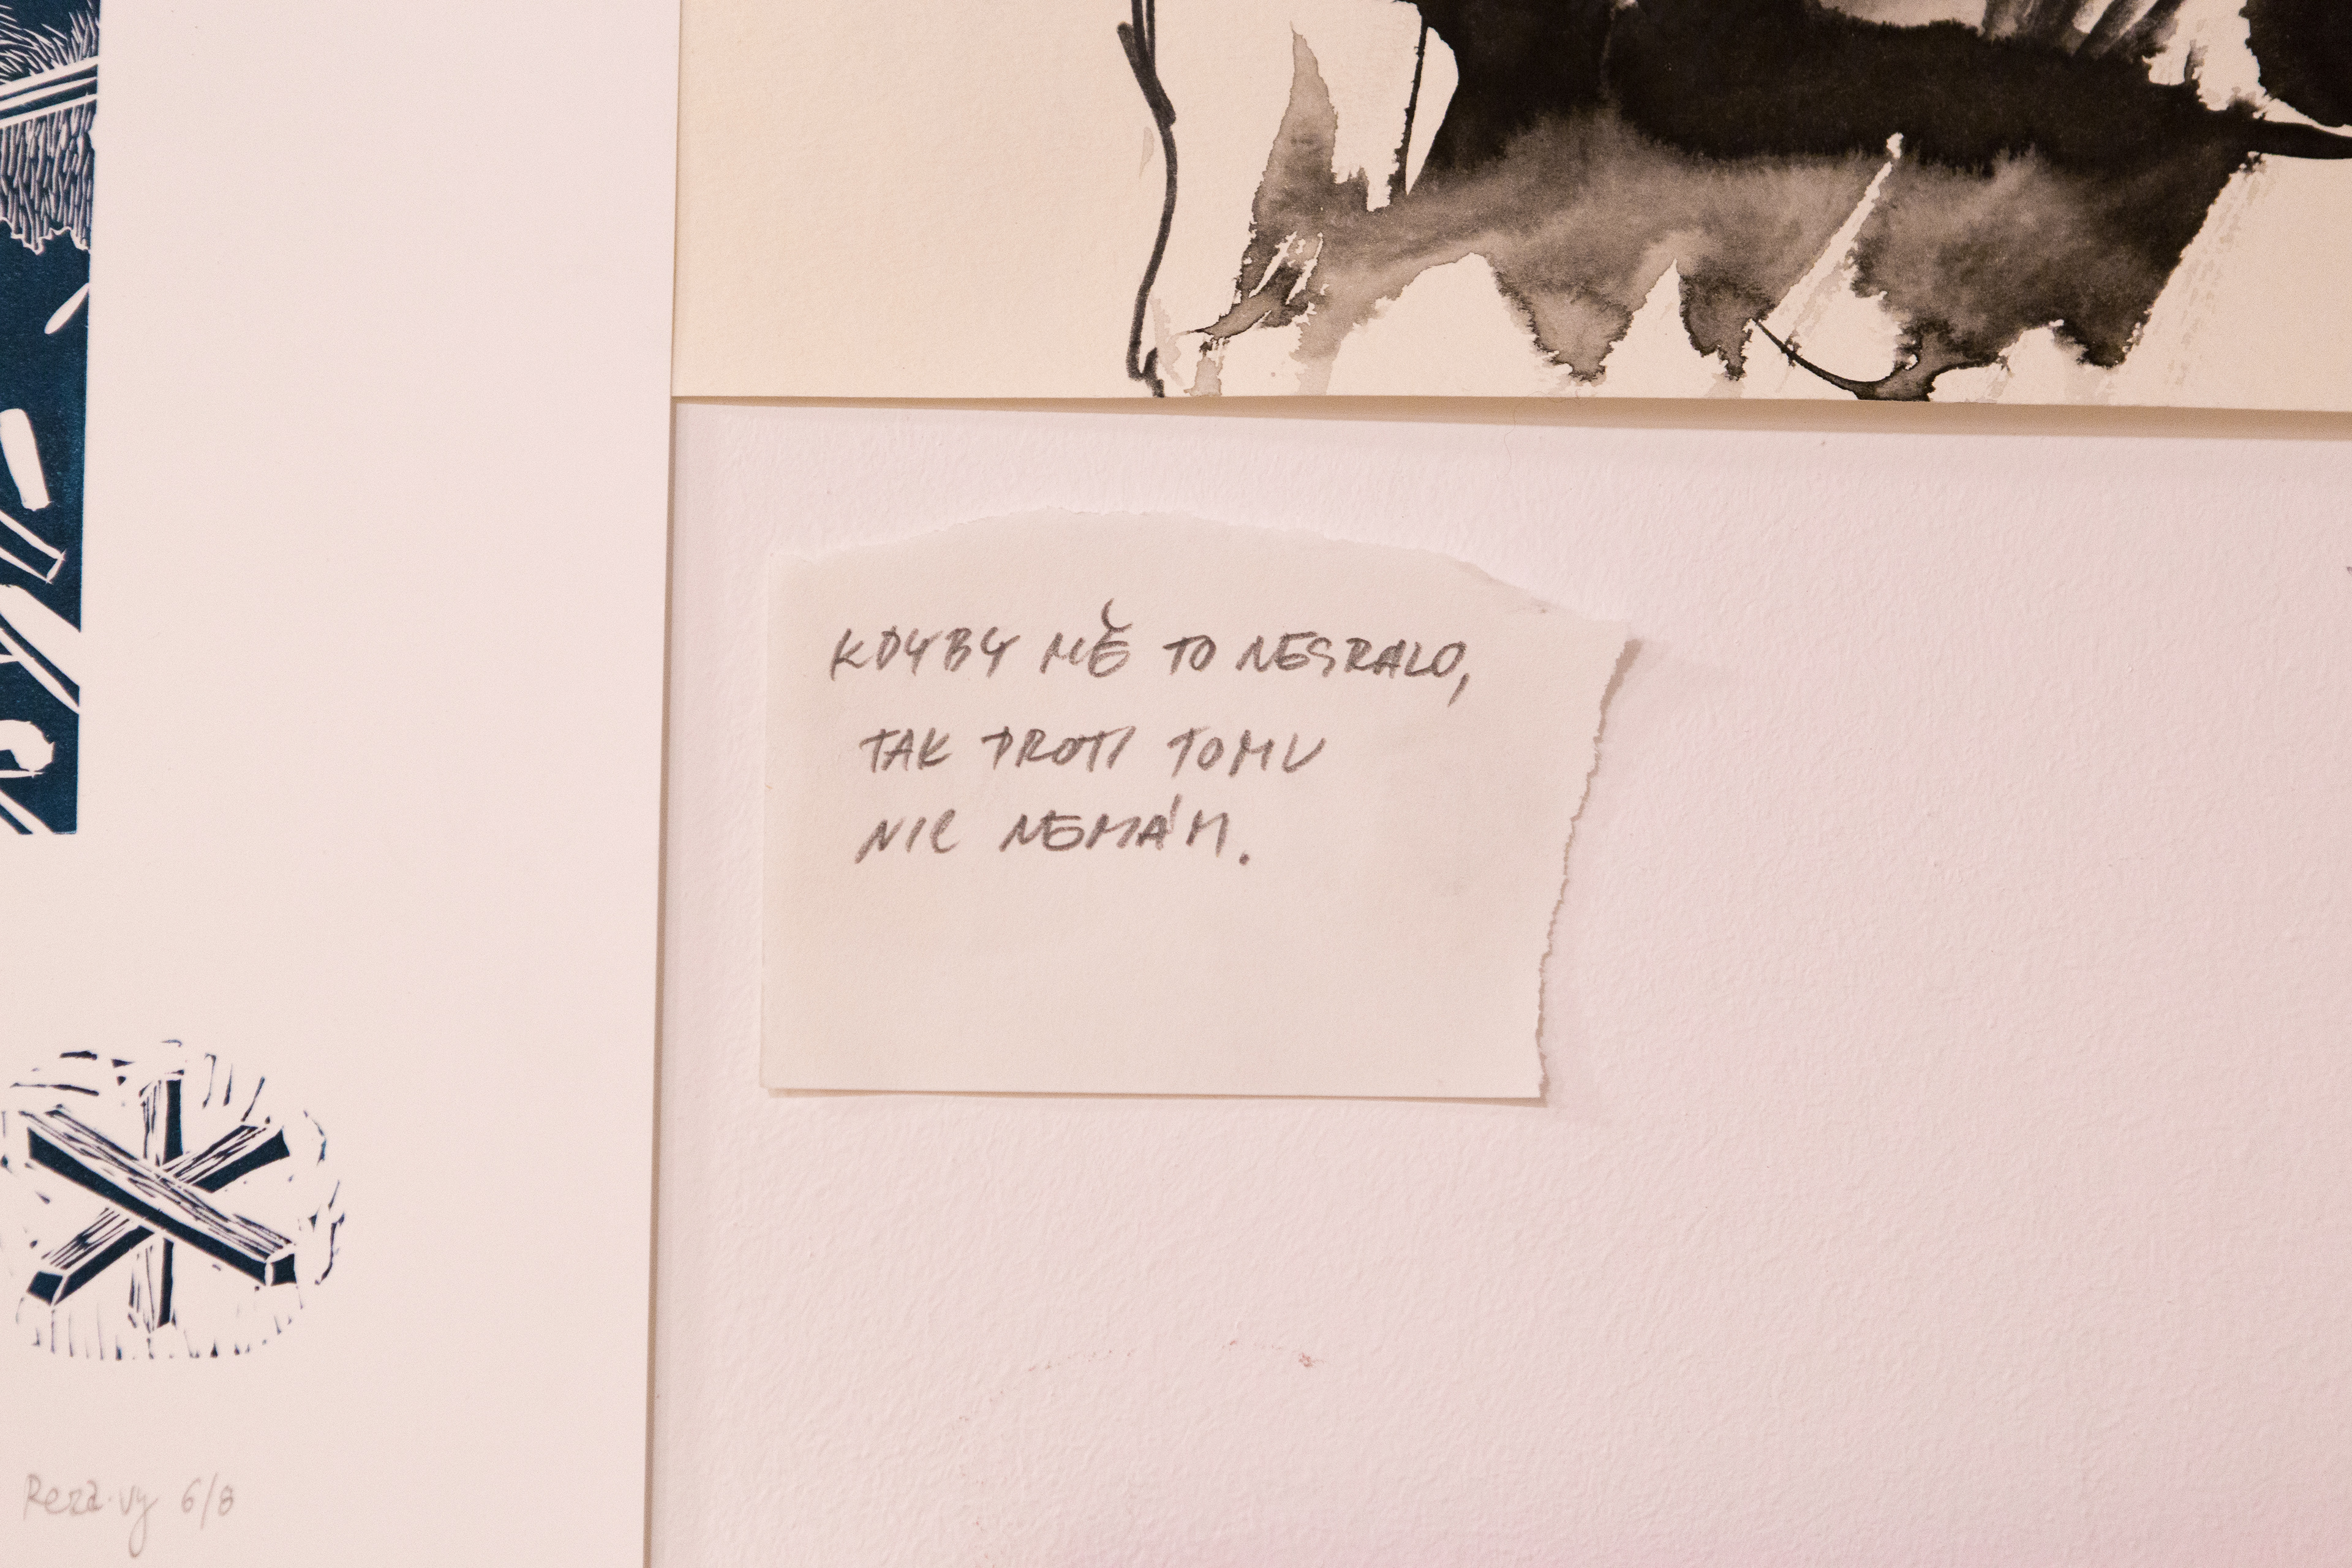 KDYBY MĚ TO NESRALO,
TAK PROTI TOMU
NIC NEMÁM.
6/8